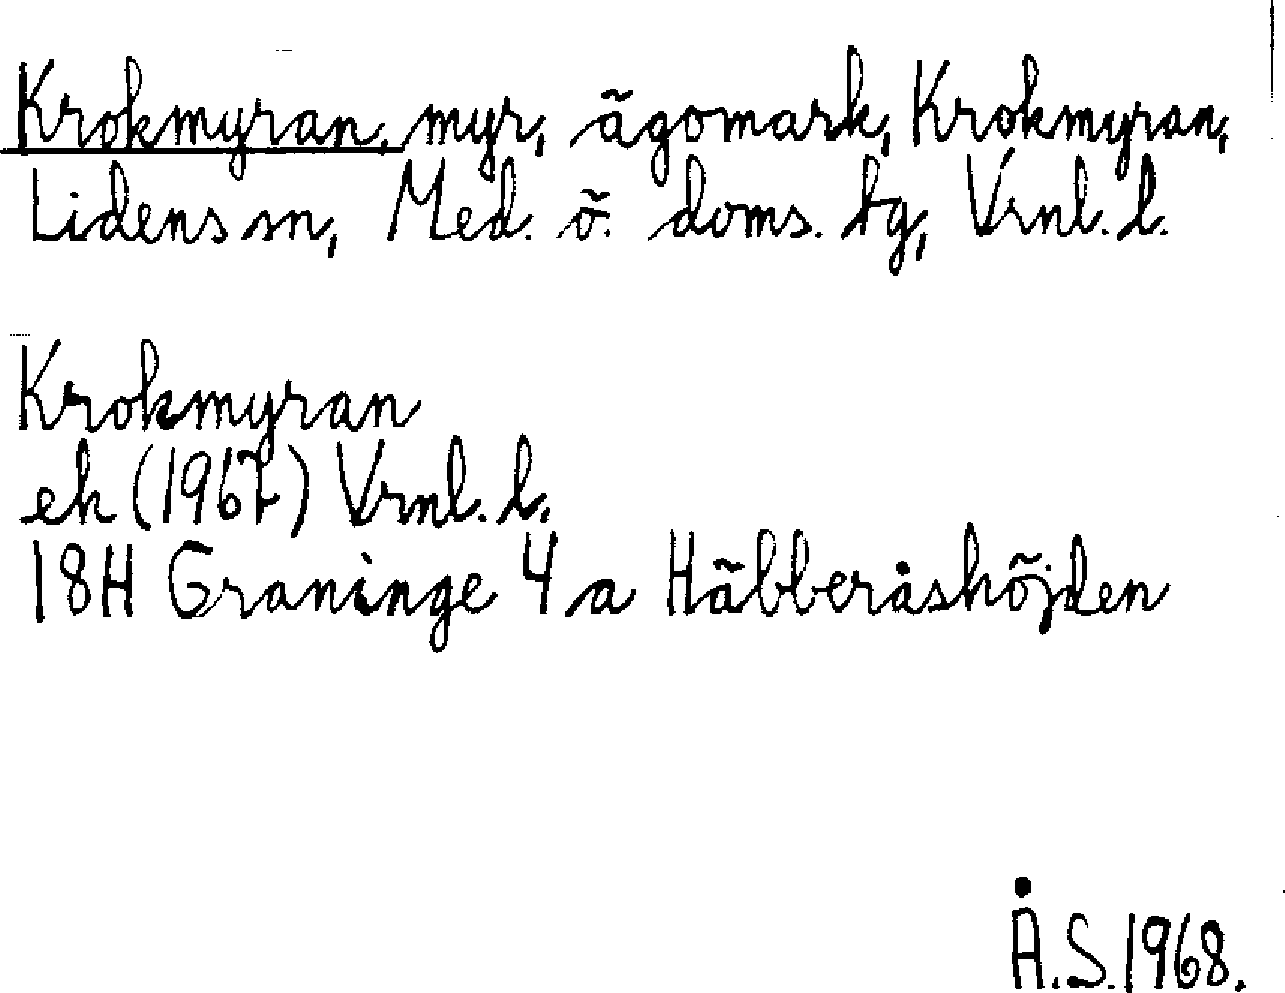 Krokmyran, myr, ägomark, Krokmyran,
Lidens sn, Med. ö. doms. tg, Vrnl. l.
Krokmyran
ek (1967) Vrnl. l.
18H Graninge 4 a Häbberåshöjden
Å.S. 1968.